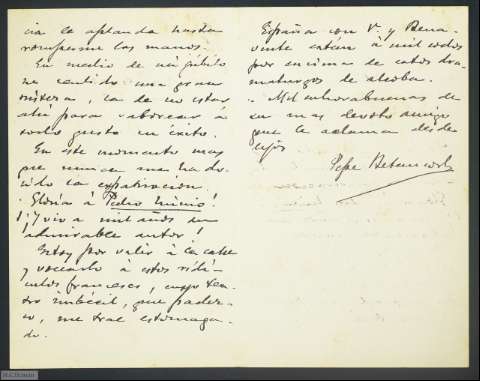 cia le aplaudo hasta
romperme las manos.
En medio de mi júbilo
he sentido una gran
tristeza, la de no estar
ahí para saborear á
todo gusto su éxito.
En este momento mas
que nunca me ha do-
lido la expatriación.
¡Gloria á Pedro Minio!
¡Y viva mil años su
admirable autor!
Estoy por salir á la calle
y vocearlo á estos ridí-
culos franceses, cuyo tea-
tro imbécil, que padez-
co, me trae estomaga-
do.
España con V. y Bena-
vente estan á mil codos
por encima de estos dra-
maturgos de alcoba.
Mil enhorabuenas de
su mas devoto amigo
que le aclama desde
lejos
Pepe Betancort